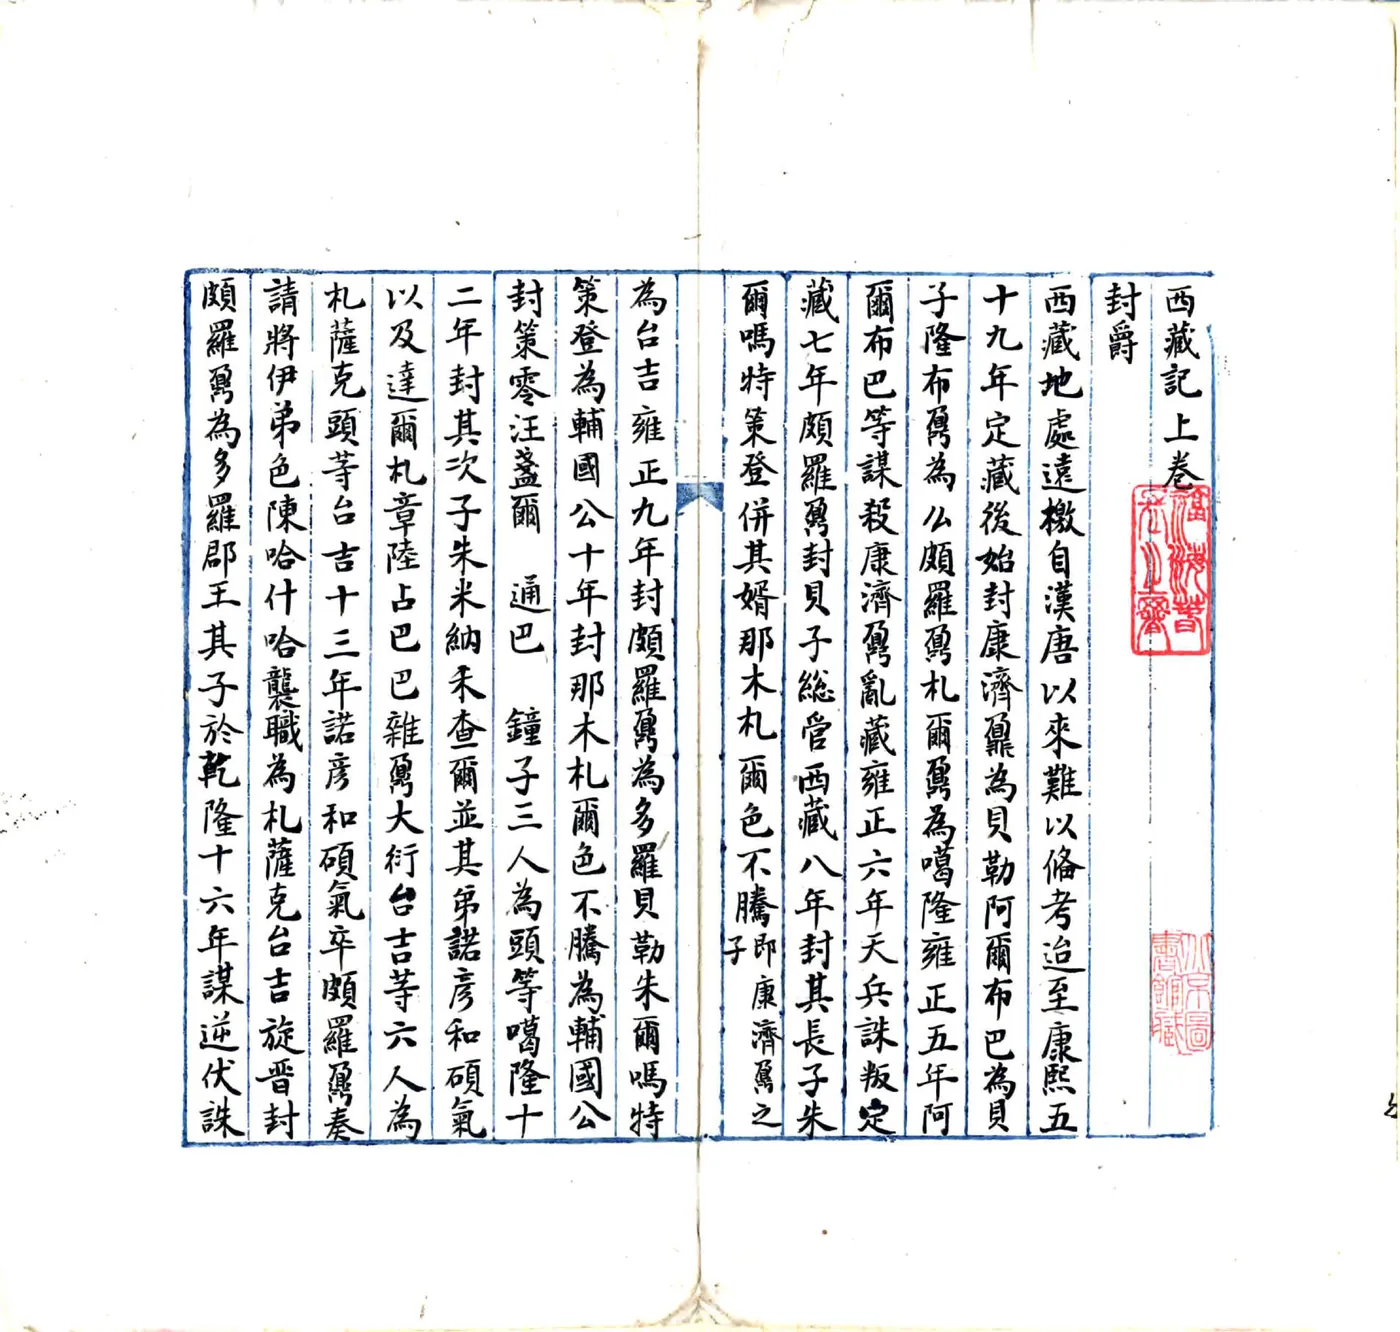 西藏記上卷
封爵
西藏地處遠檄自漢唐以來難以俻考迨至康熙五
十九年定藏後始封康濟鼐為貝勒阿爾布巴為貝
子隆布鼐為公頗羅鼐札爾鼐為噶隆雍正五年阿
爾布巴等謀殺康濟鼐亂藏雍正六年天兵誅叛定
藏七年頗羅鼐封貝子総管西藏八年封其長子朱
爾嗎特策登併其婿那木札爾色不騰即康濟鼐之
子
為台吉雍正九年封頗羅鼐為多羅貝勒朱爾嗎特
策登為輔國公十年封那木札爾色不騰為輔國公
封策零汪盞爾　通巴　鐘子三人為頭等噶隆十
二年封其次子朱米納禾查爾並其弟諾彦和碩氣
以及達爾札章陸占巴巴雜鼐大衍台吉等六人為
札薩克頭等台吉十三年諾彦和碩氣卒頗羅鼐奏
請將伊弟色陳哈什哈襲職為札薩克台吉旋晋封
頗羅鼐為多羅郡王其子於乾隆十六年謀逆伏誅